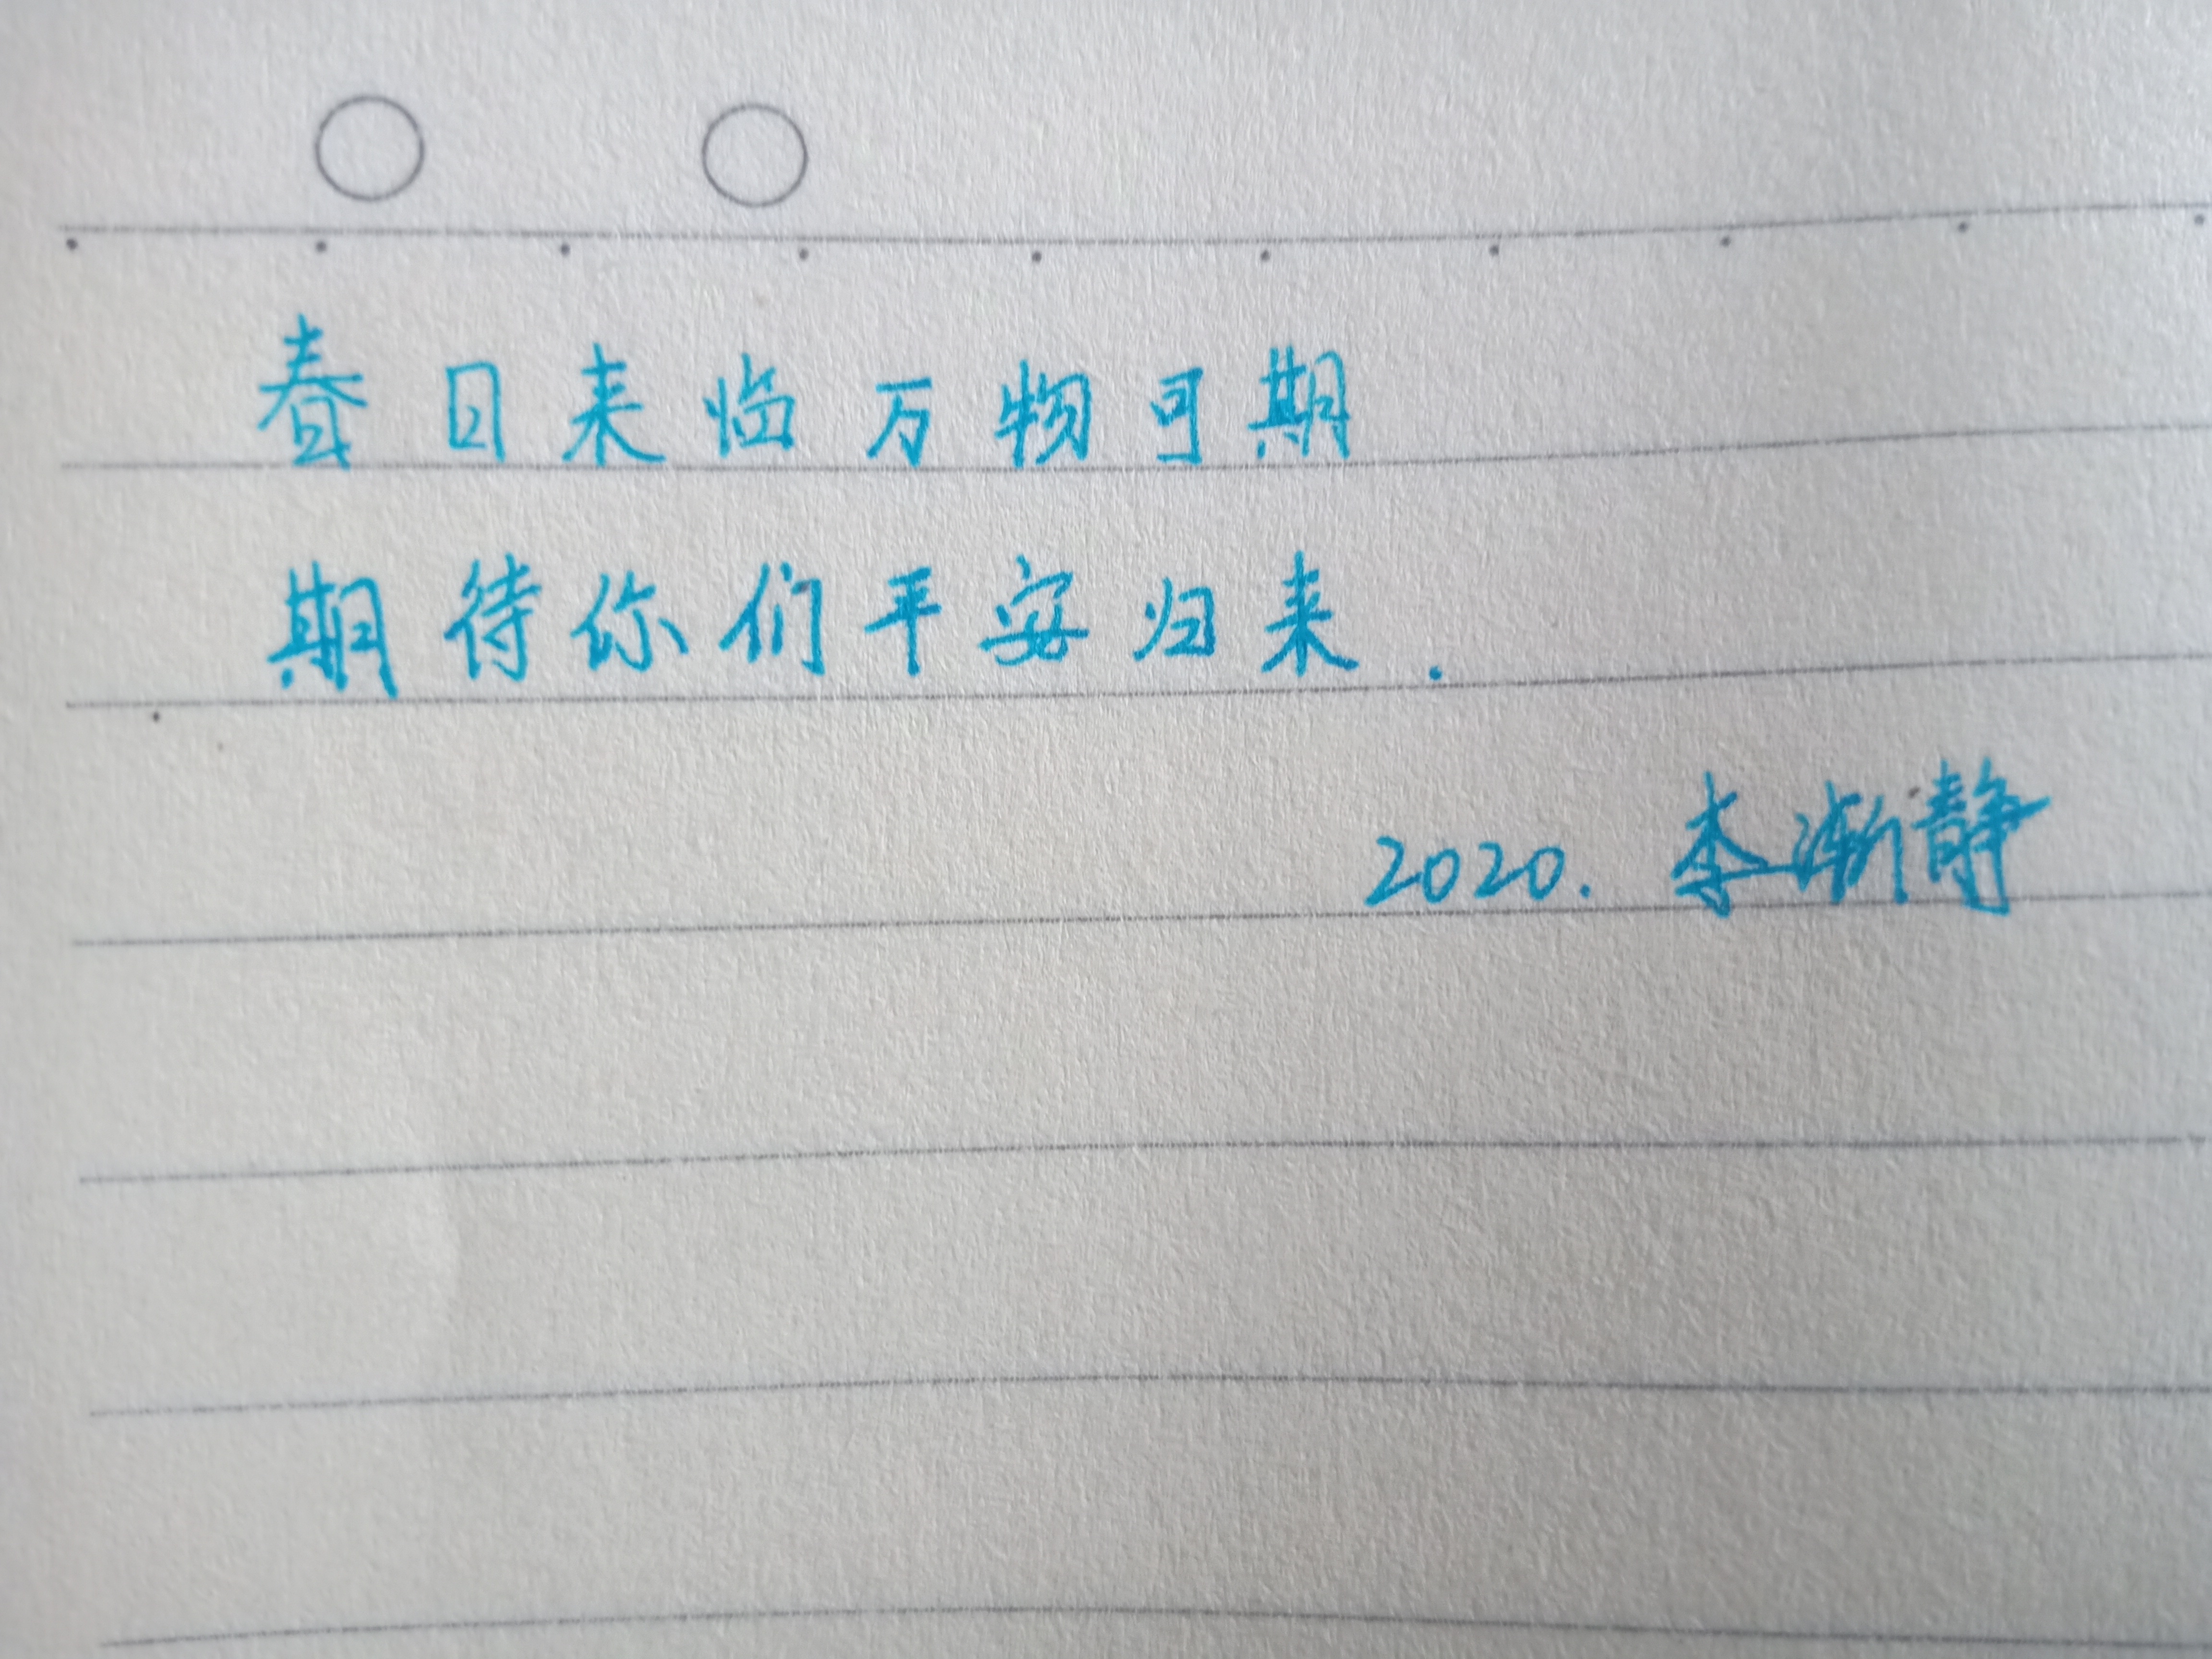 春日来临万物可期
期待你们平安归来.
2020. 李渐静